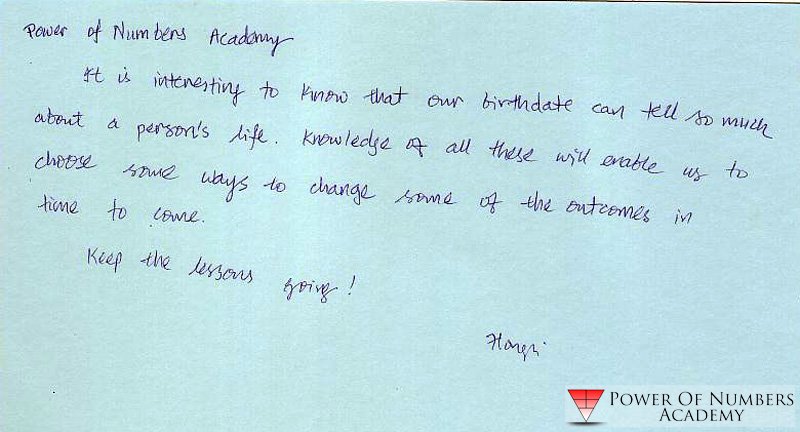 Power of Numbers Academy
It is interesting to know that our birthdate can tell so much
about a person's life. Knowledge of all these will enable us to
choose some ways to change some of the outcomes in
time to come.
Keep the lessons going!
POWER OF NUMBERS
ACADEMY